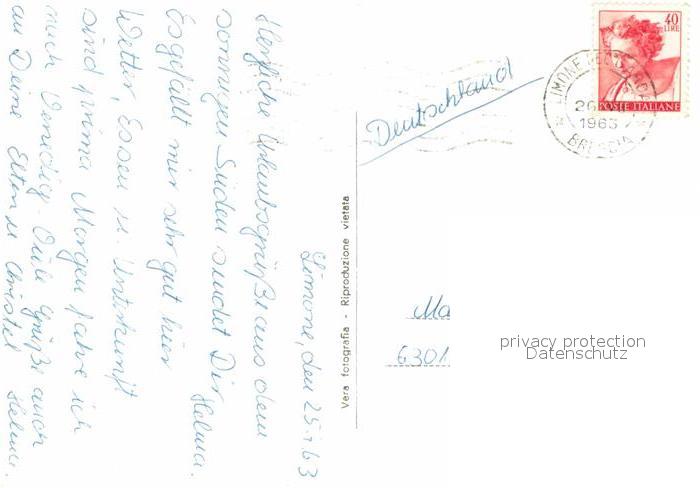 Limone, den 25.7.63
Herzliche Urlaubsgrüße aus dem
sonnigen Süden sendet Dir
Helma.
Es gefällt mir sehr gut hier
Wetter, Essen u. Unterkunft
sind prima Morgen fahre ich
nach Venedig. Viele Grüße auch
an Deine Eltern u Christel Helma.
Vera fotografia - Riproduzione vietata
Deutschland
40
LIRE
POSTE ITALIANE
LIMONE DEL GARDA
26
1963
BRESCIA
Ma
6301
privacy protection
Datenschutz